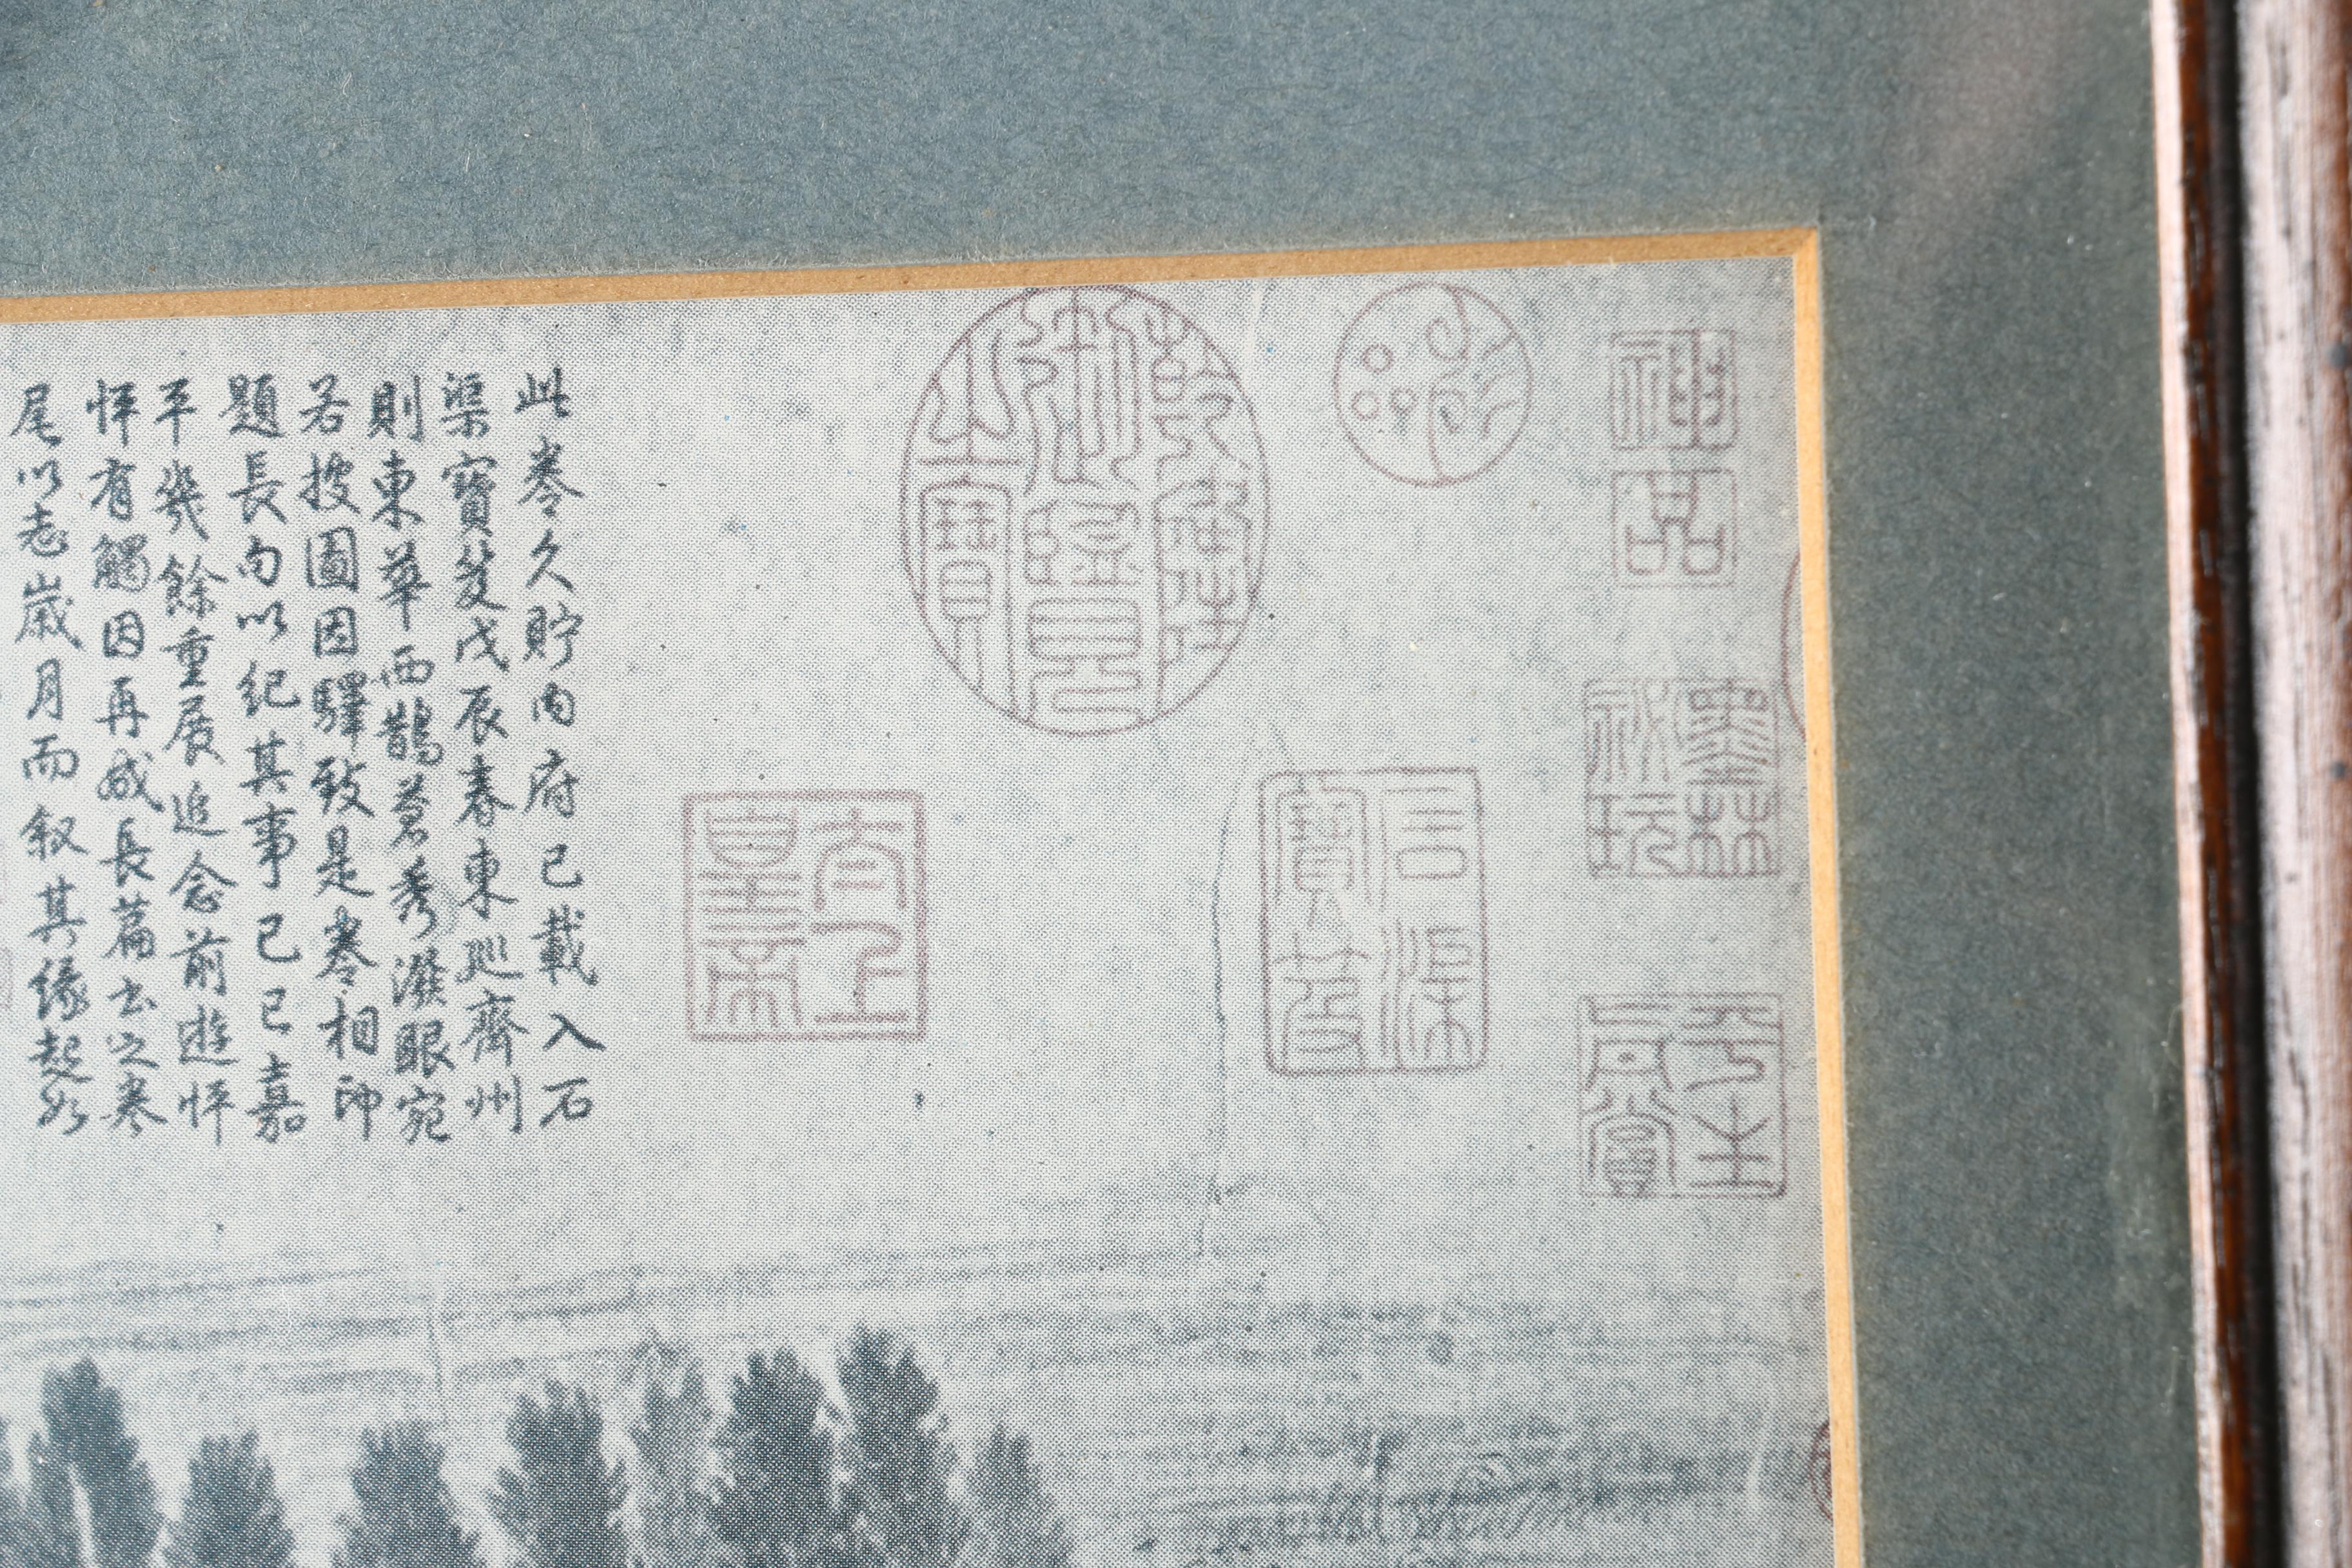 神品
墨林
祕玩
平生
真賞
石渠
寶笈
乾隆
御覽
之寶
太上
皇帝
此卷久貯內府已載入石
渠寶笈戊辰春東巡齊州
則東華西鵲蒼秀潑眼宛
若披圖因驛致是卷相印
題長句以紀其事己巳嘉
平幾餘重展追念前遊怦
怦有觸因再成長篇書之卷
尾以志歲月而叙其緣起如